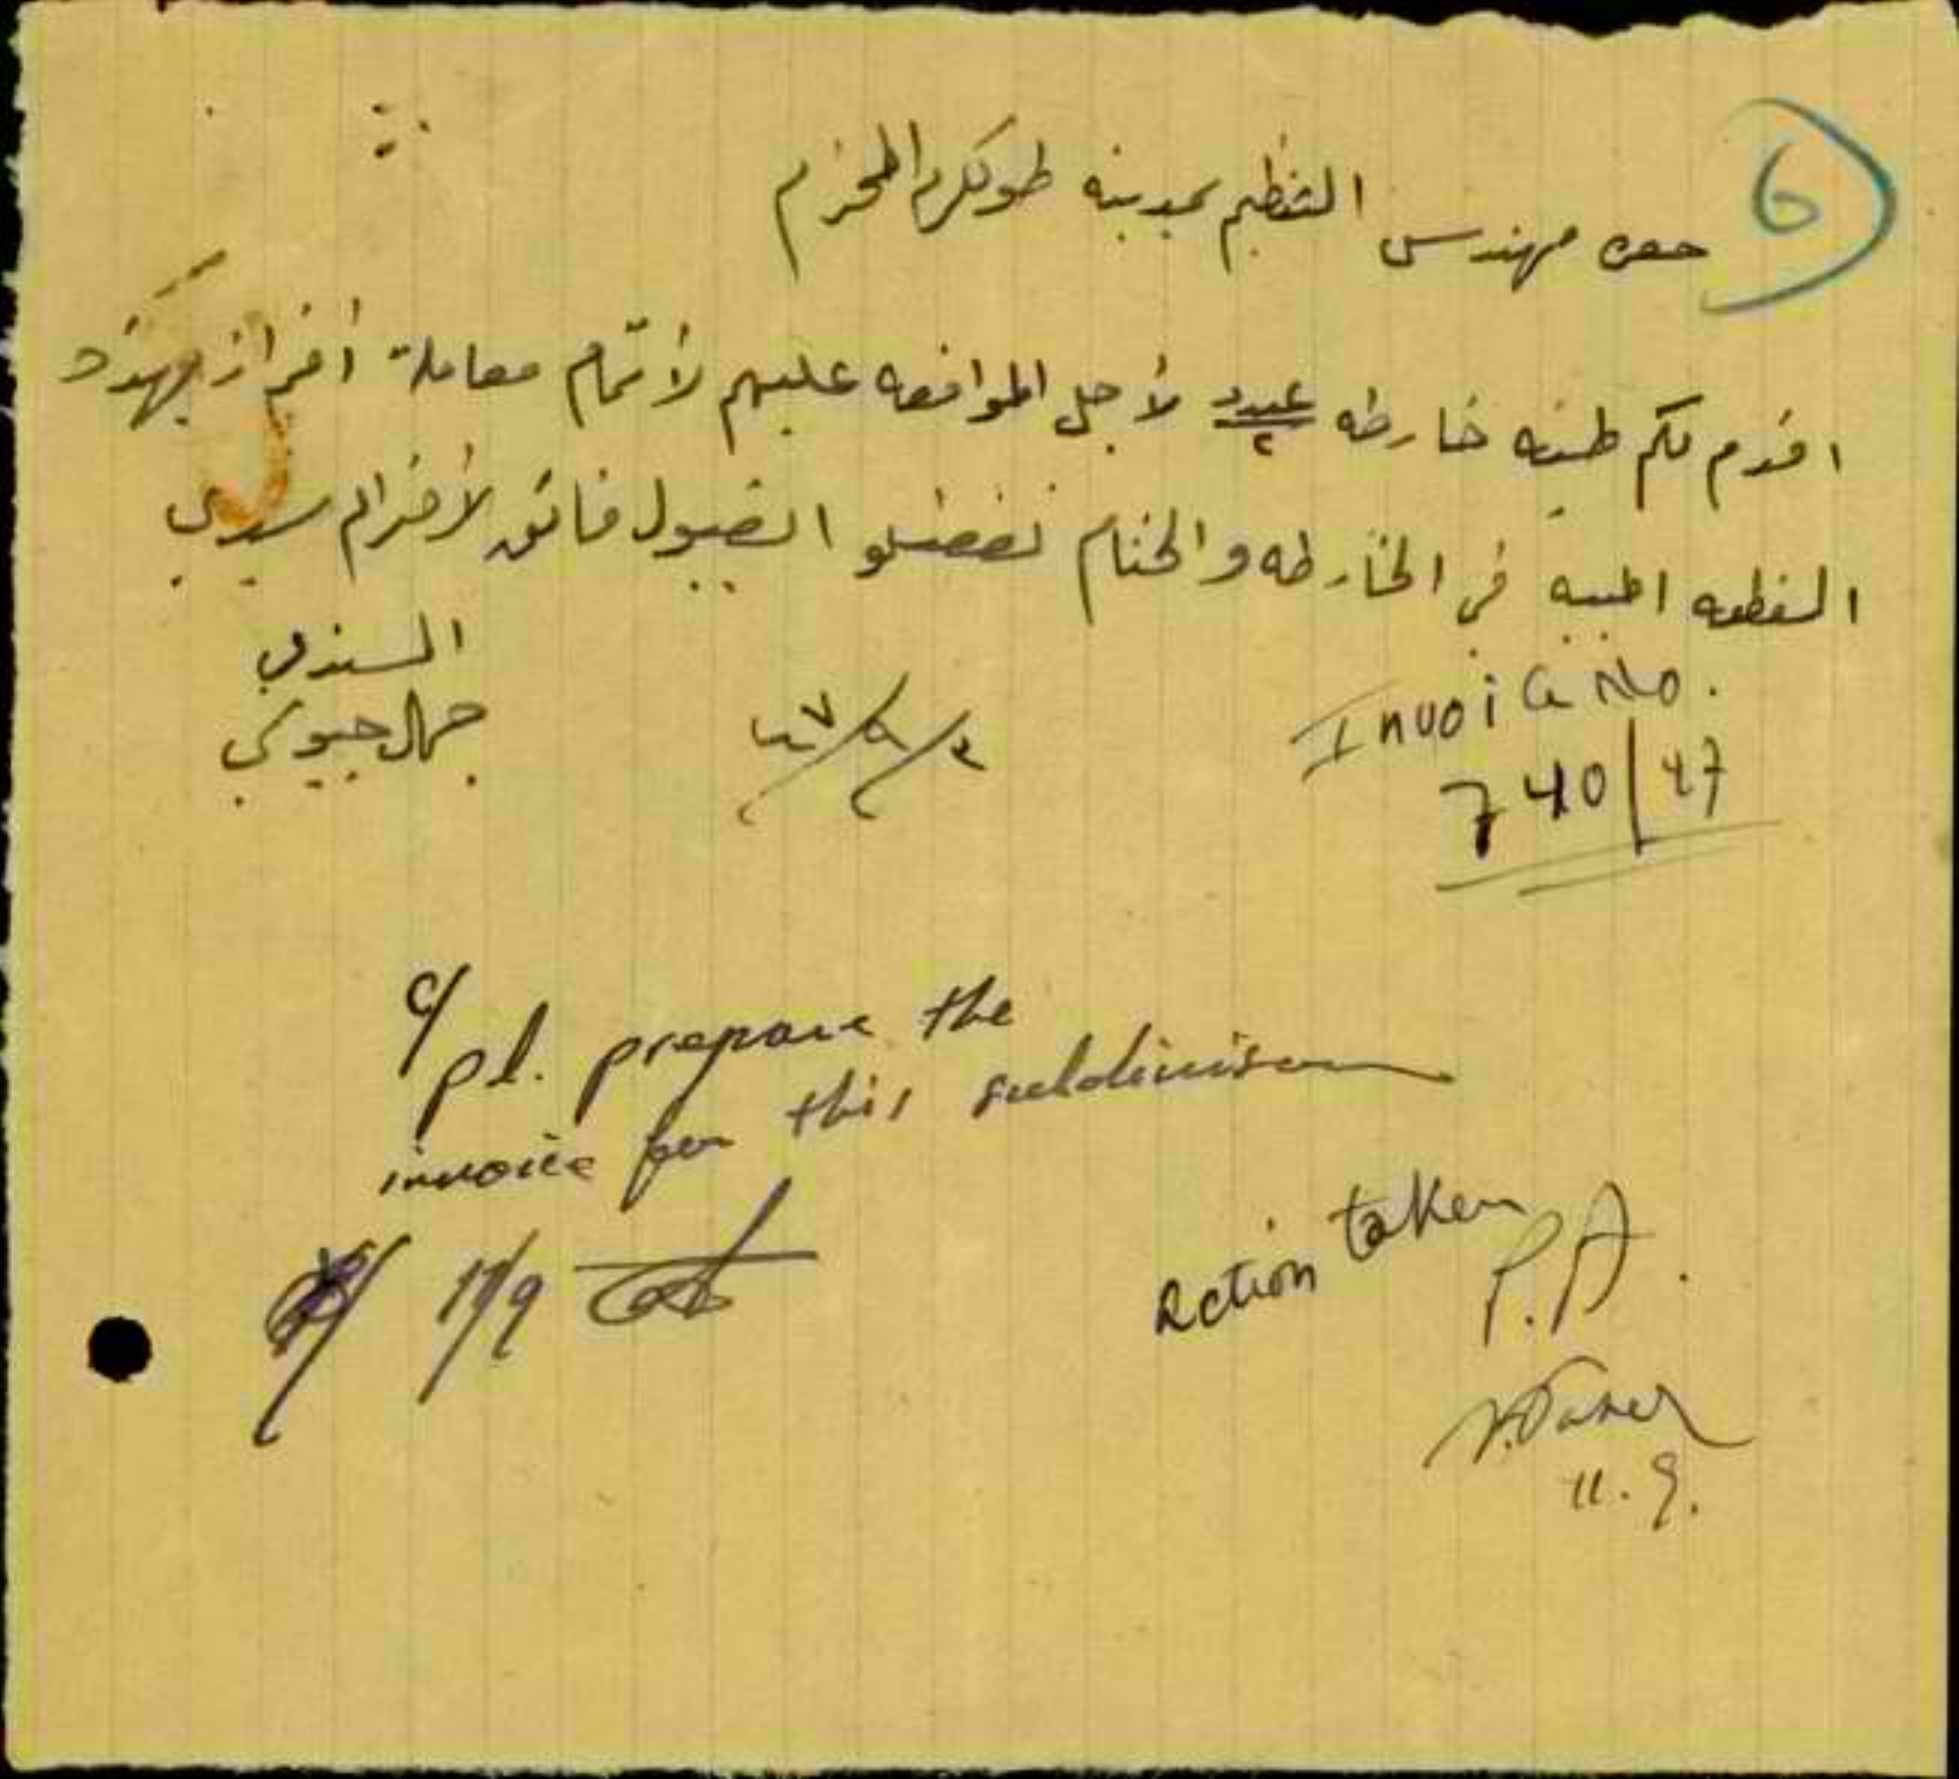 6
حضرة مهندس التنظيم بمدينه طولكرم المحترم
اقدم لكم طيه خارطه عدد ٢ لأجل الموافقه عليهم لأتمام معاملة أفراز بهذه
القطعه المبينه في الخارطه والختام تفضلو القبول فائق لأحترام سيدي
المستدعي
جمال جيوسي
٣/٩/٤٧
Invoice No.
740/47
c/
pl. prepare the
invoice for this subdivision
11/9
Action taken
P.A.
11.9.